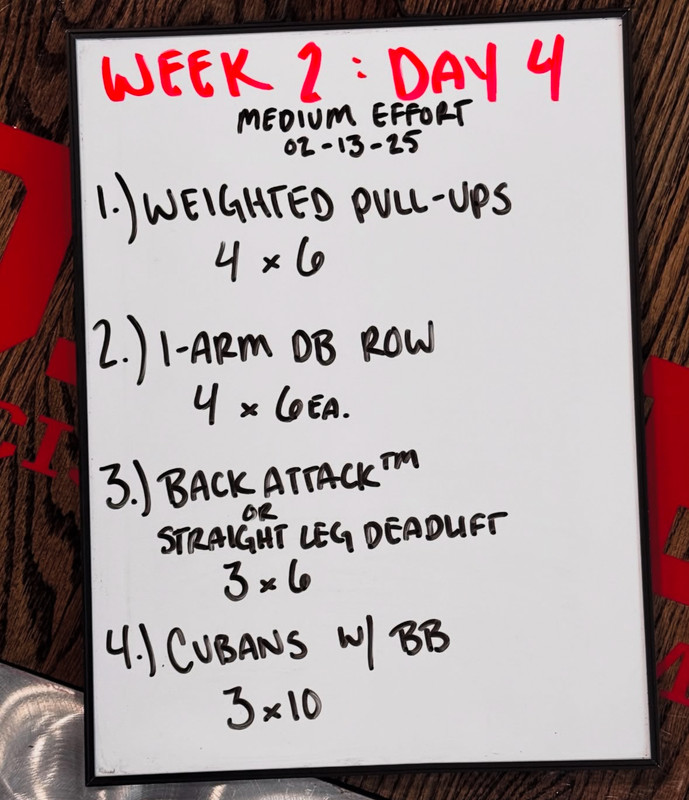 WEEK 2 : DAY 4
MEDIUM EFFORT
02-13-25
1.) WEIGHTED PULL-UPS
4 x 6
2.) 1-ARM DB ROW
4 x 6 EA.
3.) BACK ATTACK™
OR
STRAIGHT LEG DEADLIFT
3 x 6
4.) CUBANS W/ BB
3 x 10